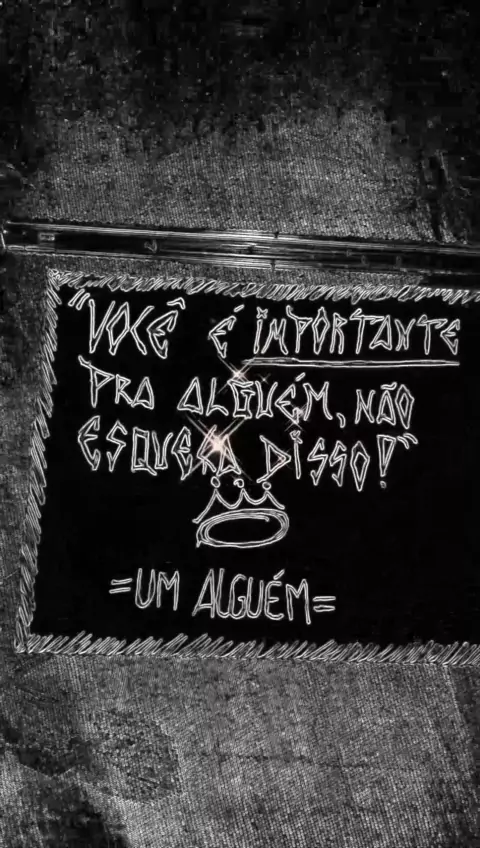 "VOCÊ É IMPORTANTE
PRA ALGUÉM, NÃO
ESQUEÇA DISSO!"
=UM ALGUÉM=